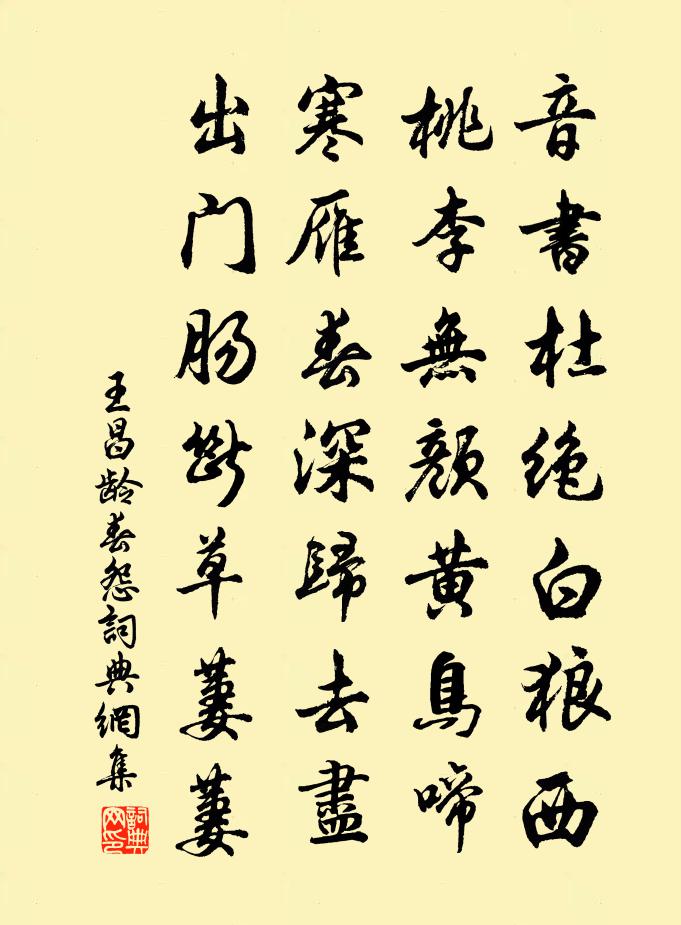 音書杜絶白狼西
桃李無顏黃鳥啼
寒雁春深歸去盡
出门肠斷草萋萋
王昌龄春怨詞典網集
詞典网印